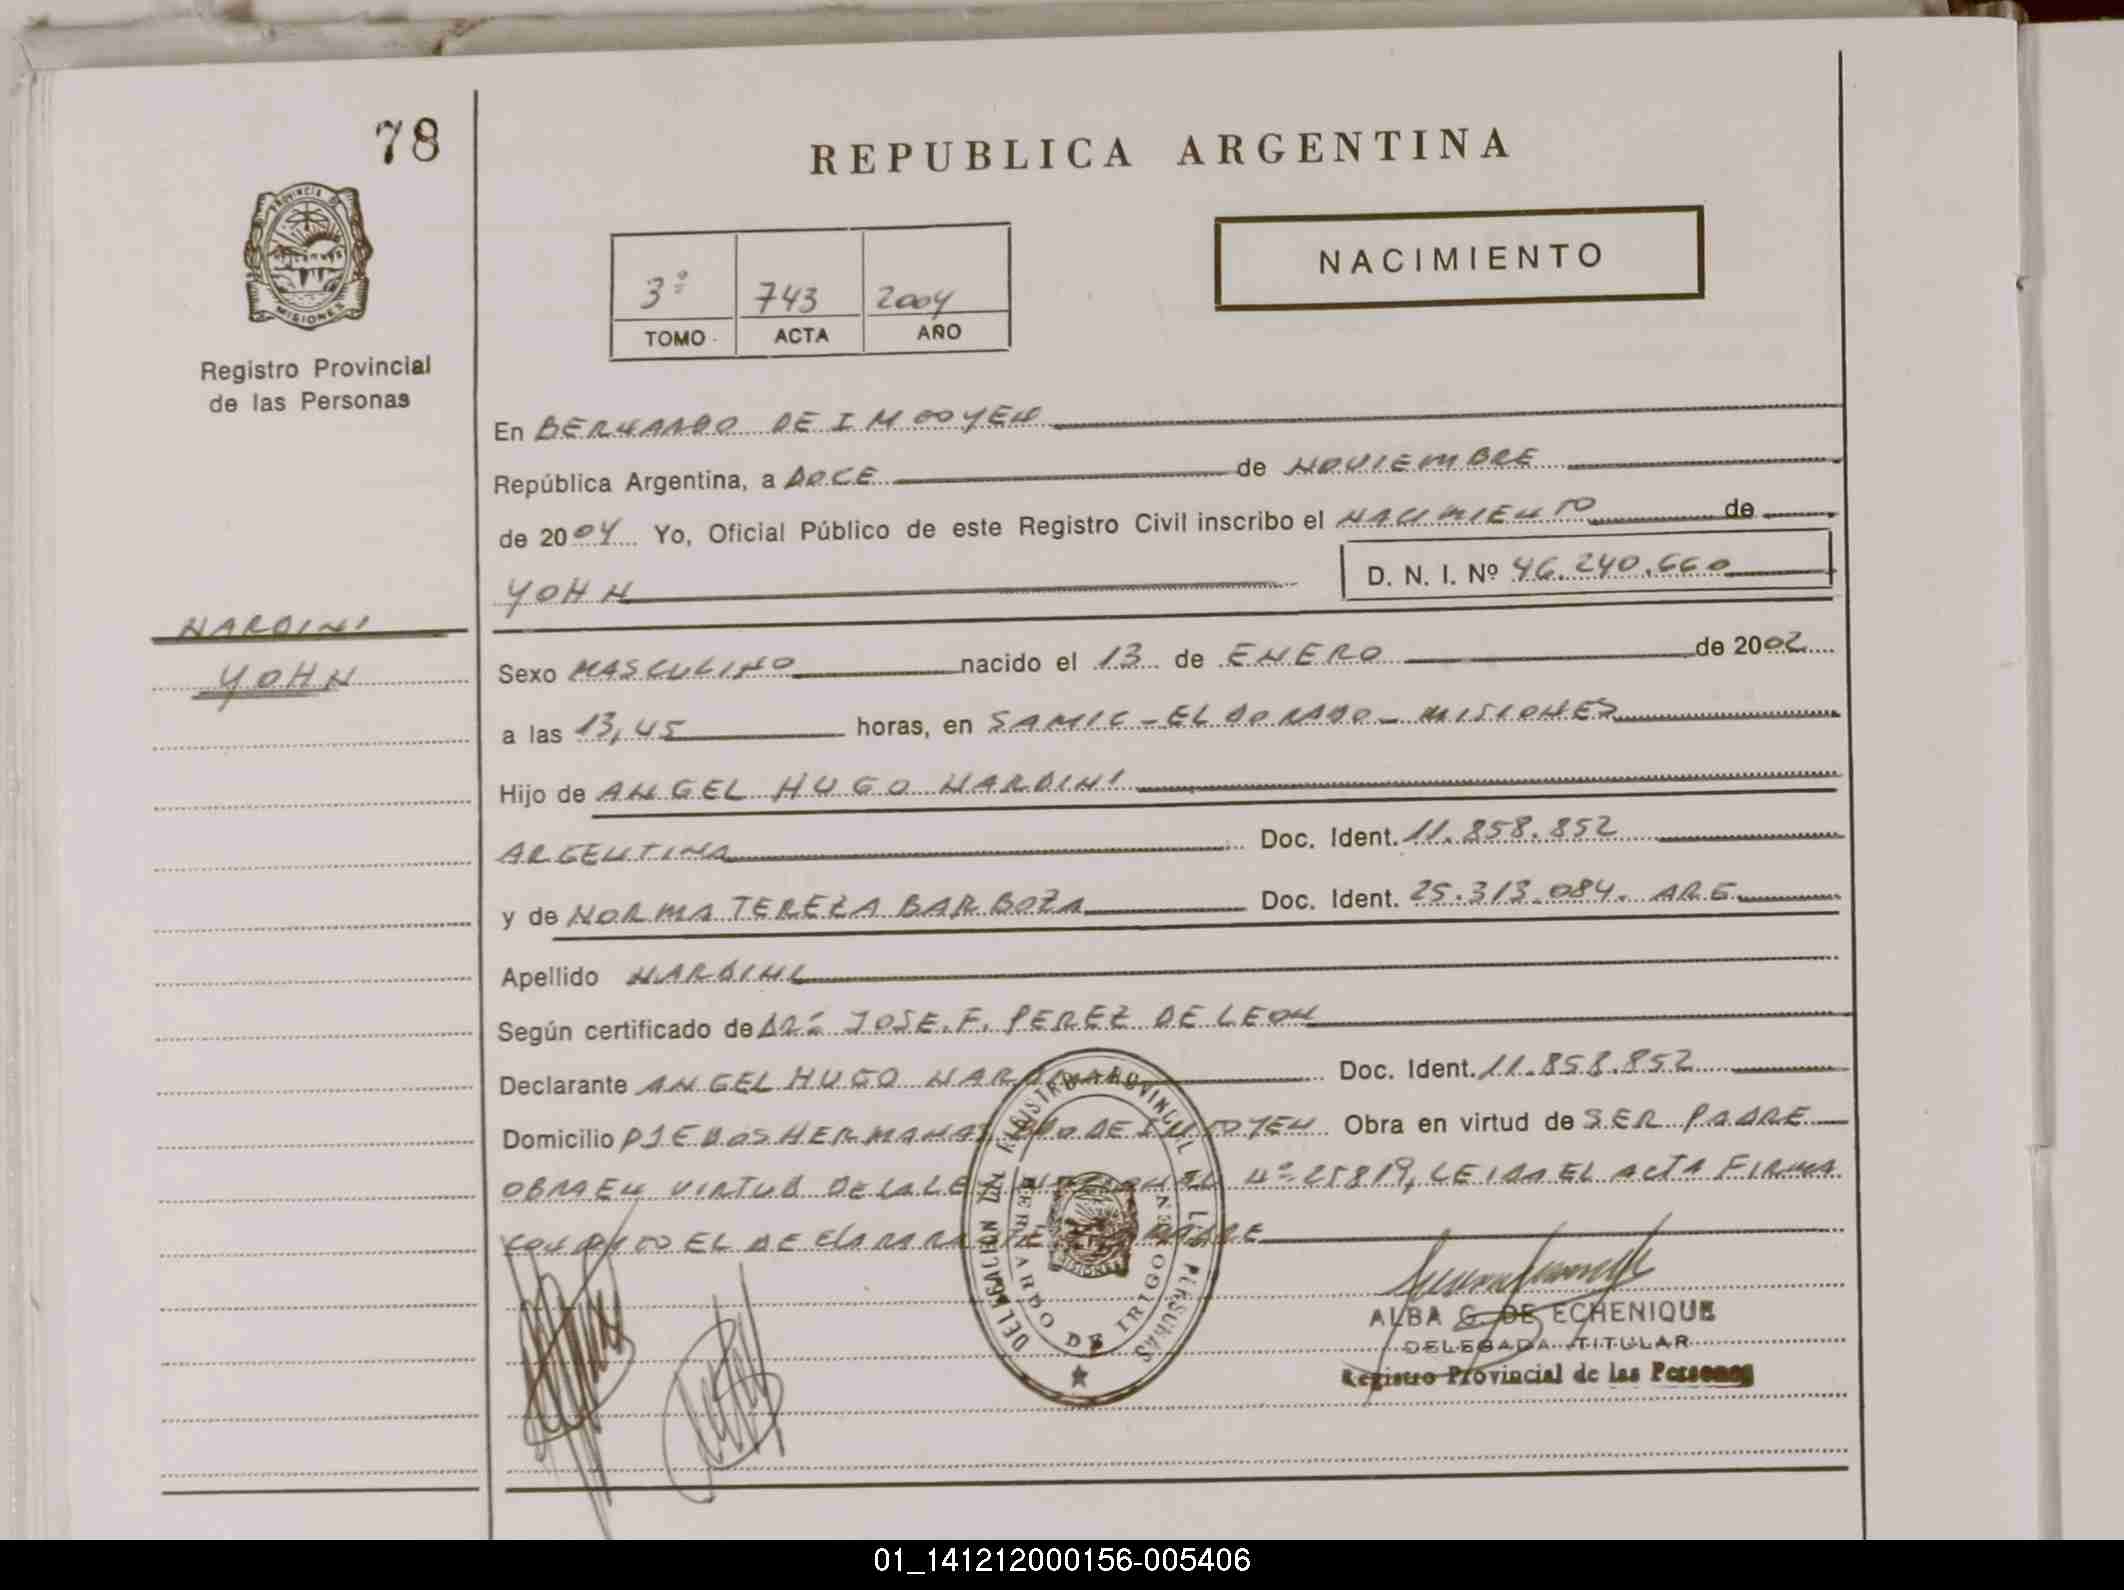 78
REPUBLICA ARGENTINA
PROVINCIA DE
MISIONES
NACIMIENTO
3º 743 2004
TOMO ACTA AÑO
Registro Provincial
de las Personas
En BERNARDO DE IRIGOYEN
República Argentina, a DOCE de NOVIEMBRE
de 2004 Yo, Oficial Público de este Registro Civil inscribo el NACIMIENTO de
YOHN D. N. I. Nº 46.240.660
NARDINI
YOHN
Sexo MASCULINO nacido el 13 de ENERO de 2002
a las 13,45 horas, en SAMIC - ELDORADO - MISIONES
Hijo de ANGEL HUGO NARDINI
ARGENTINA Doc. Ident. 11.858.852
y de NORMA TEREZA BARBOZA Doc. Ident. 25.313.084. ARG.
Apellido NARDINI
Según certificado de JOSE. F. PEREZ DE LEON
Declarante ANGEL HUGO NARDINI Doc. Ident. 11.858.852
Domicilio PJE DOS HERMANAS, BDO DE IRIGOYEN Obra en virtud de SER PADRE
OBRA EN VIRTUD DE LA LEY NACIONAL Nº 25819, LEIDA EL ACTA FIRMA
CONMIGO EL DECLARANTE MADRE
DELEGACION DEL REGISTRO PROVINCIAL PERSONAS
BERNARDO DE IRIGOYEN
MISIONES
ALBA G. DE ECHENIQUE
DELEGADA TITULAR
Registro Provincial de las Personas
01_141212000156-005406